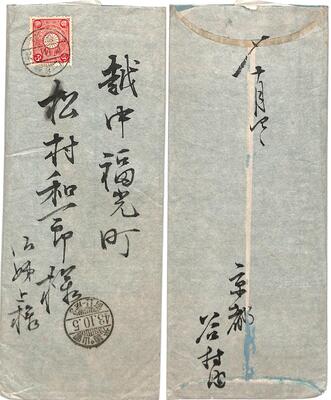 越中福光町
松村和一郎様
御姉上様
43.10.5
十月四
京都
谷村